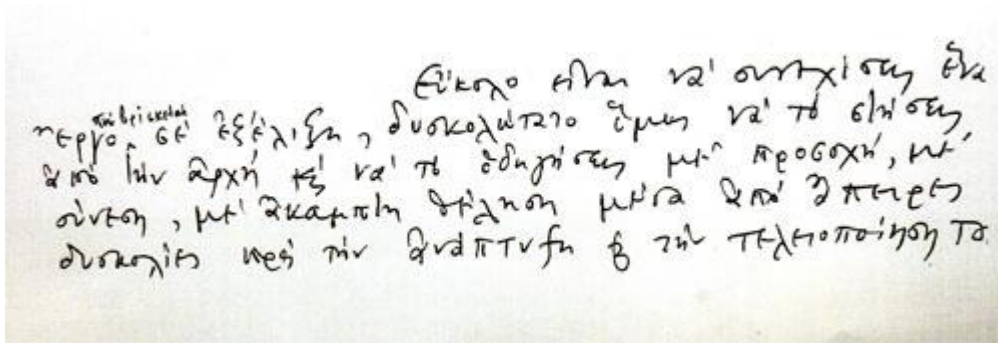 Εὔκολο εἶναι νὰ συνεχίσεις ἕνα
ἔργο ποὺ βρίσκεται σὲ ἐξέλιξη, δυσκολώτατο ὅμως νὰ τὸ στήσεις
ἀπὸ τὴν ἀρχὴ καὶ νὰ τὸ ὁδηγήσεις μὲ προσοχή, μὲ
σύνεση, μὲ ἄκαμπτη θέληση μέσα ἀπὸ ἄπειρες
δυσκολίες πρὸς τὴν ἀνάπτυξη & τὴν τελειοποίησή το